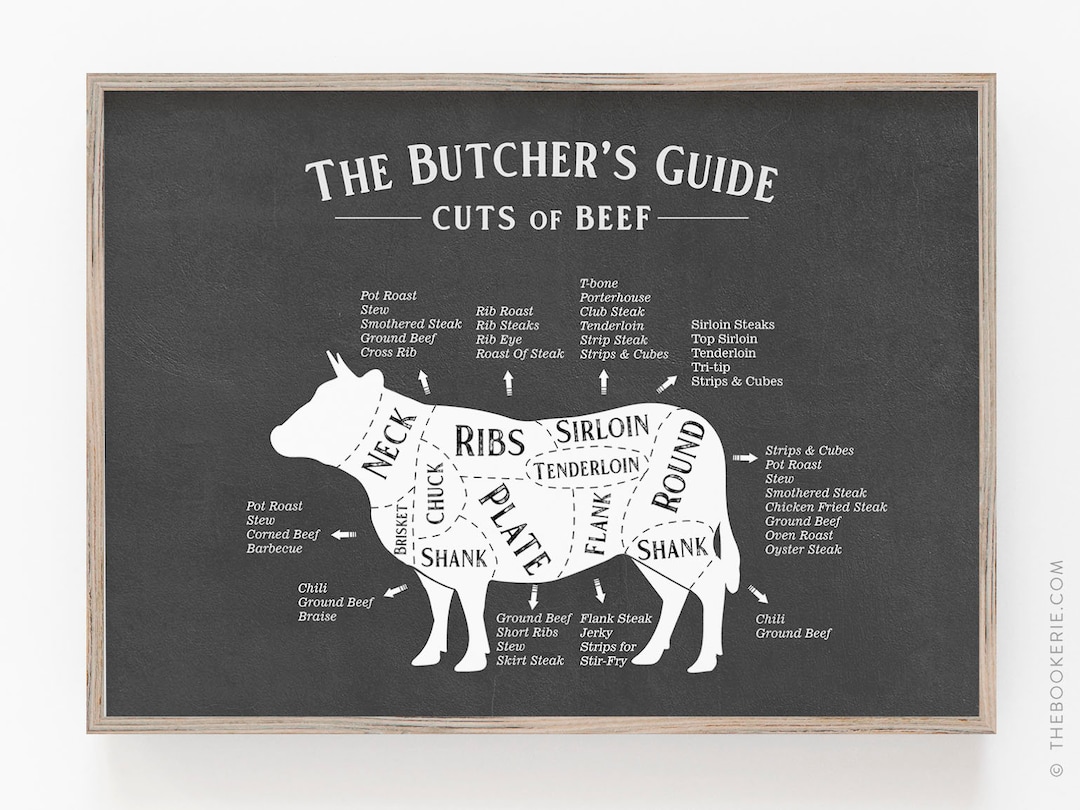 The Butcher's Guide
CUTS OF BEEF
Pot Roast
Stew
Smothered Steak
Ground Beef
Cross Rib
Rib Roast
Rib Steaks
Rib Eye
Roast Of Steak
T-bone
Porterhouse
Club Steak
Tenderloin
Strip Steak
Strips & Cubes
Sirloin Steaks
Top Sirloin
Tenderloin
Tri-tip
Strips & Cubes
NECK
RIBS
SIRLOIN
TENDERLOIN
ROUND
CHUCK
PLATE
FLANK
BRISKET
SHANK
SHANK
Strips & Cubes
Pot Roast
Stew
Smothered Steak
Chicken Fried Steak
Ground Beef
Oven Roast
Oyster Steak
Pot Roast
Stew
Corned Beef
Barbecue
Chili
Ground Beef
Braise
Ground Beef
Short Ribs
Stew
Skirt Steak
Flank Steak
Jerky
Strips for
Stir-Fry
Chili
Ground Beef
© THEBOOKERIE.COM